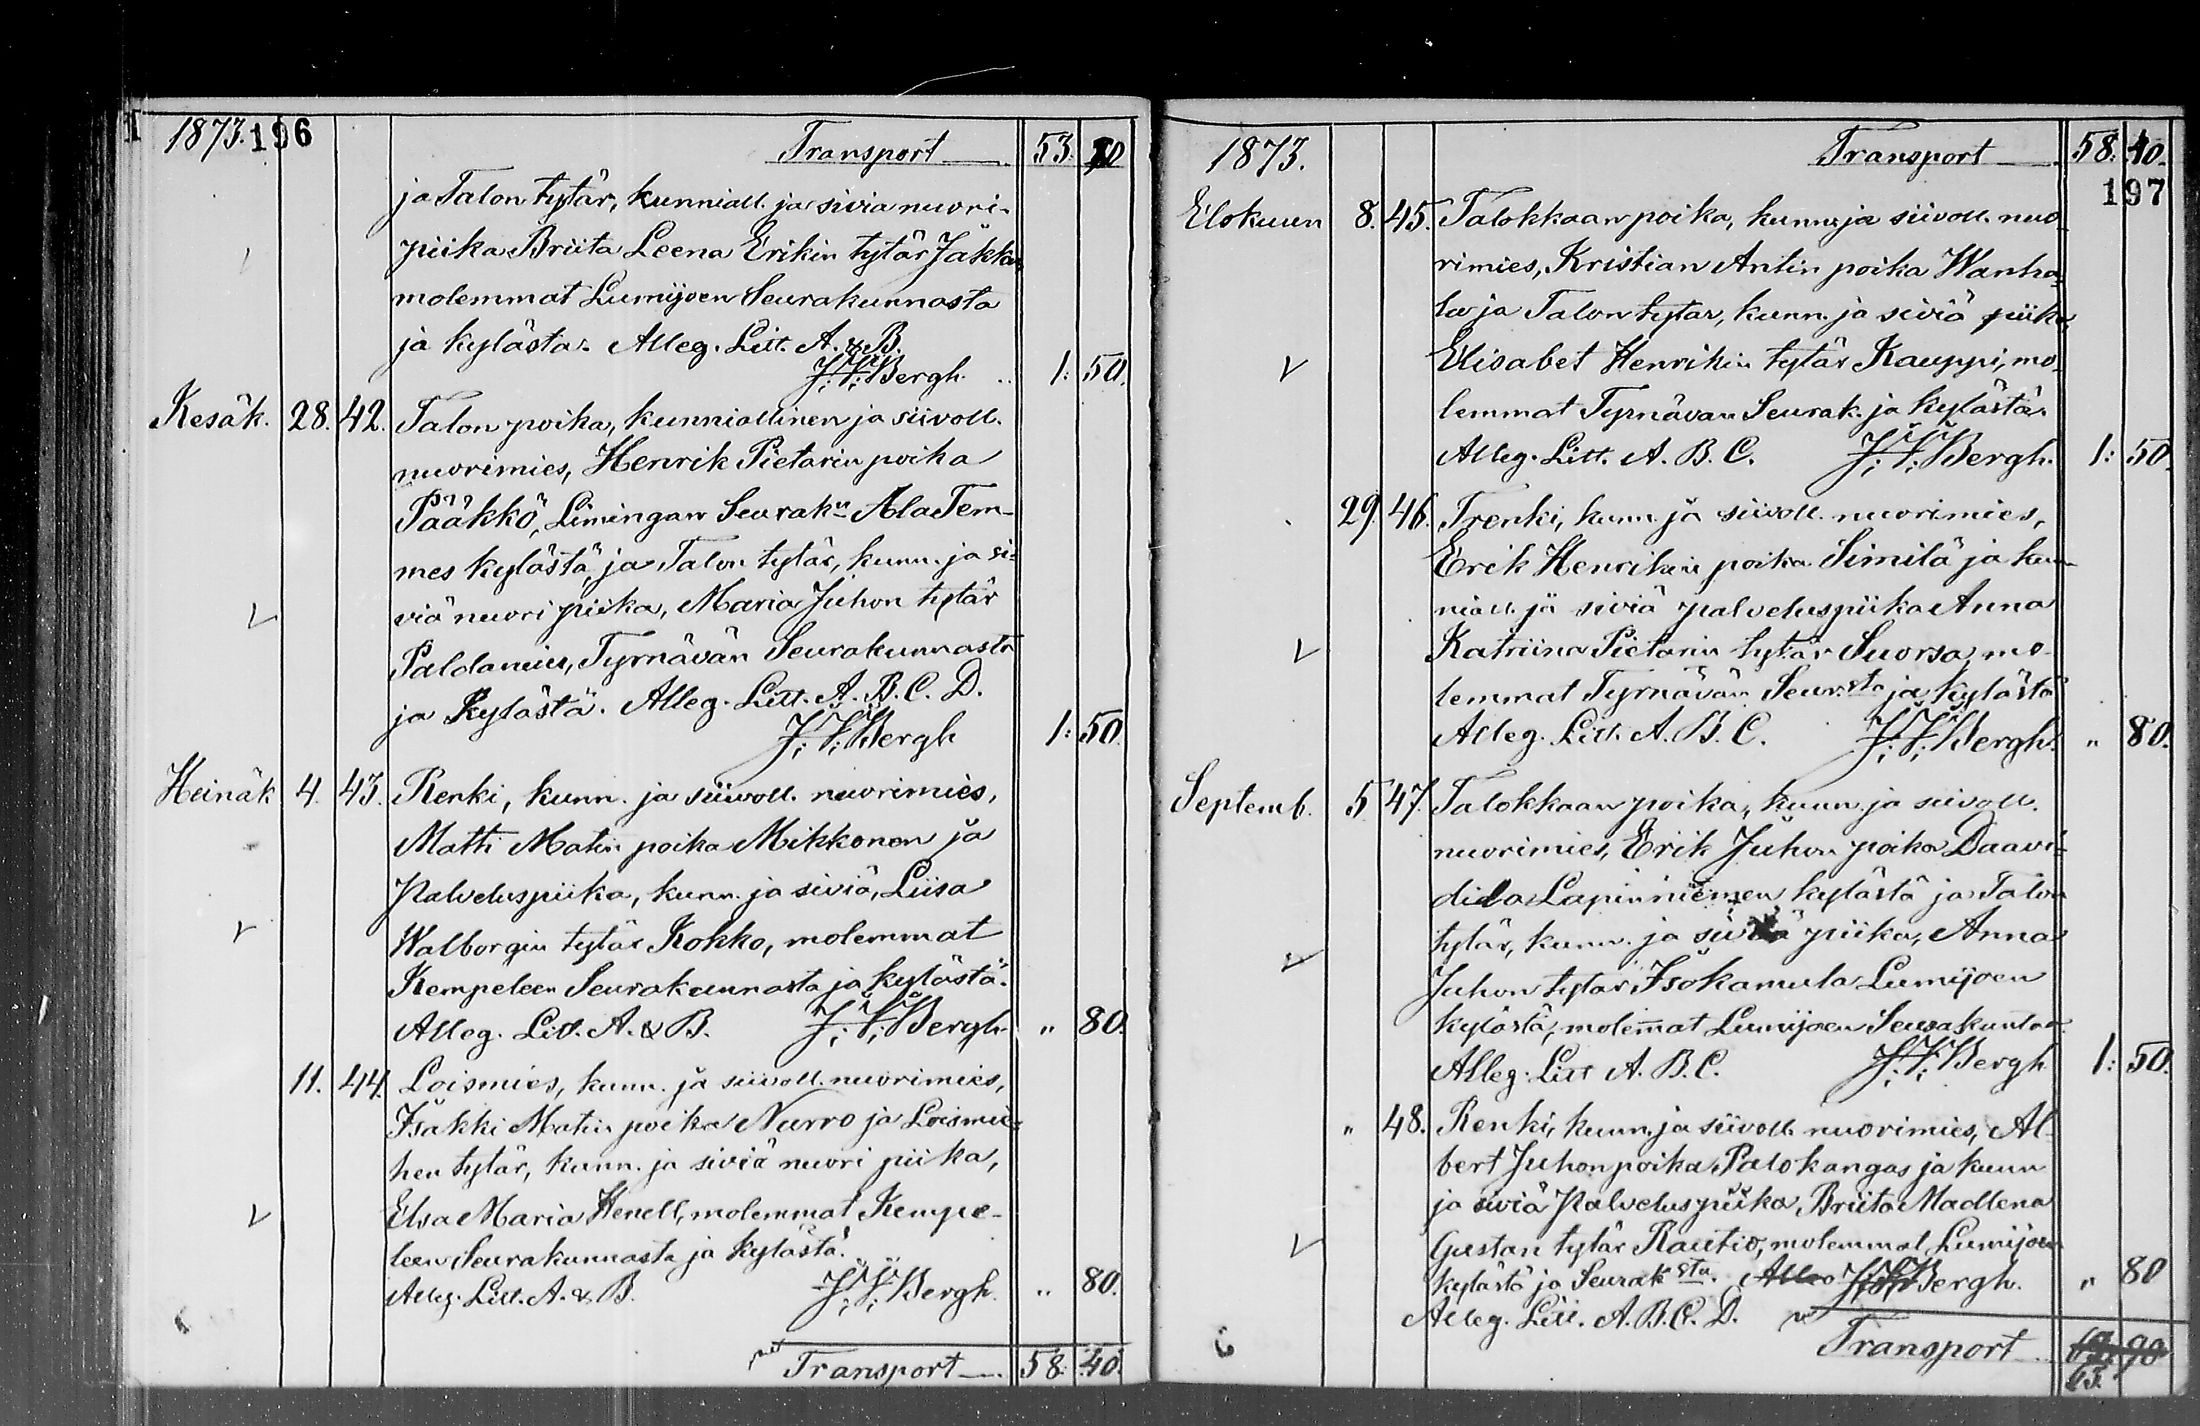 1873. 196 Transport 53.
ja Talon tytär, kunniall. ja siviä nuori-
piika Briita Leena Erikin tytär Jäkkö
molemmat Lumijoen Seurakunnasta
ja kylästä. Alleg. Litt. A. & B.
J. V. Bergh. 1: 50.
Kesäk. 28. 42. Talon poika, kunniallinen ja siivoll.
nuorimies, Henrik Pietarin poika
Pääkkö, Limingan Seurakn Ala Tem-
mes kylästä, ja Talon tytär, kunn. ja si-
viä nuori piika, Maria Juhon tytär
Paldanius, Tyrnävän Seurakunnasta
ja Kylästä. Alleg. Litt. A. B. C. D.
J. V. Bergh 1: 50.
Heinäk 4. 43. Renki, kunn. ja siivoll. nuorimies,
Matti Matin poika Mikkonen ja
Palveluspiika, kunn. ja siviä, Liisa
Walborgin tytär Kokko, molemmat
Kempeleen Seurakunnasta ja kylästä.
Alleg. Litt. A. & B. J. V. Bergh. " 80.
11. 44. Loismies, kunn. ja siivoll. nuorimies,
Isakki Matin poika Nurro ja Loismie-
hen tytär, kunn. ja siviä nuori piika,
Elsa Maria Henell, molemmat Kempe-
leen Seurakunnasta ja kylästä.
Alleg. Litt. A. & B. J. V. Bergh. " 80.
Transport 58. 40.
1873. Transport 58. 40.
197
Elokuun 8. 45. Talokkaan poika, kunn. ja siivoll. nuo-
rimies, Kristian Antin poika Wanha-
la ja Talon tytär, kunn. ja siviä piika
Elisabet Henrikin tytär Kauppi, mo-
lemmat Tyrnävän Seurak. ja kylästä.
Alleg. Litt. A. B. C. J. V. Bergh. 1: 50.
29. 46. Trenki, kunn. ja siivoll. nuorimies,
Erik Henrikin poika Similä ja kun-
niall. ja siviä palveluspiika Anna
Katriina Pietarin tytär Suorsa, mo-
lemmat Tyrnävän Seur.sta ja kylästä
Alleg. Litt. A. B. C. J. V. Bergh. " 80.
Septemb. 5 47. Talokkaan poika, kunn. ja siivoll.
nuorimies, Erik Juhon poika Daavi-
dila Lapinniemen kylästä ja Talon
tytär, kunn. ja siviä piika, Anna
Juhon tytär Isokamula Lumijoen
kylästä, molemmat Lumijoen Seurakuntaa.
Alleg. Litt A. B. C. J. V. Bergh 1: 50.
" 48. Renki, kunn. ja siivoll. nuorimies, Al-
bert Juhon poika Palokangas ja kunn
ja siviä Palveluspiika, Briita Madlena
Gustan tytär Rautio, molemmat Lumijoen
kylästä ja Seurak sta. J. V. Bergh. " 80
Alleg. Litt. A. B. C. D.
Transport